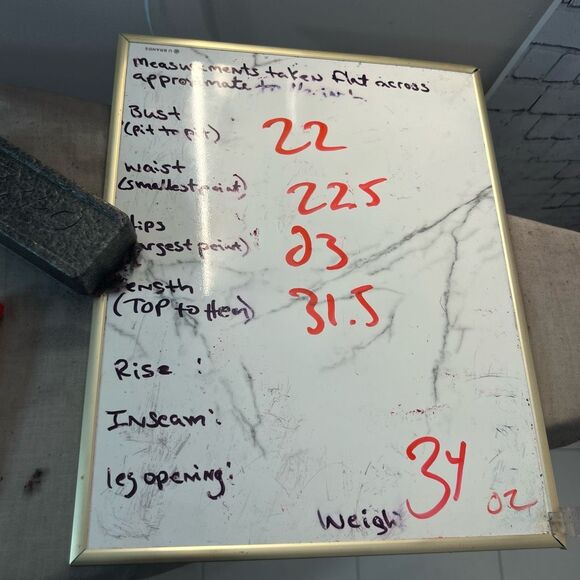 U BRANDS
measurements taken flat across
approximate to
Bust :
(pit to pit) 22
waist
(smallest point) 22.5
Hips
largest point) 23
Length
(TOP to Hem) 31.5
Rise :
Inseam :
leg opening :
34
Weigh oz